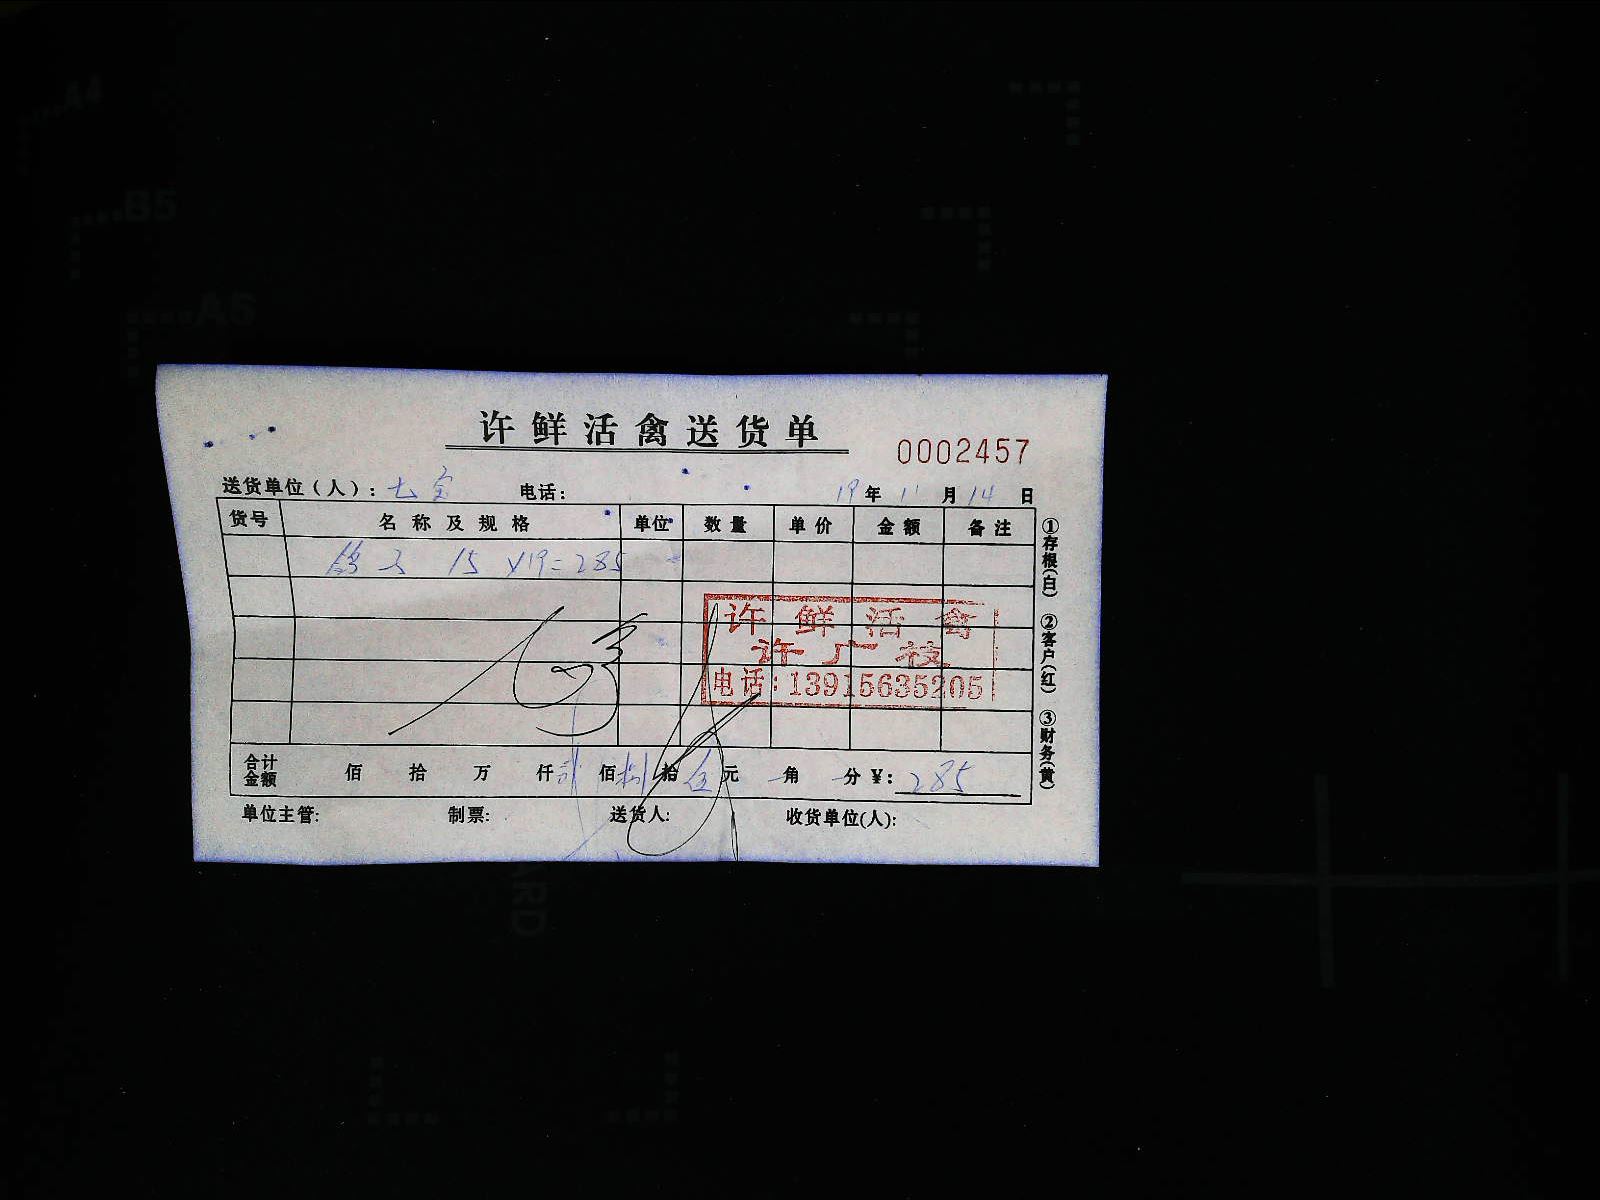 许鲜活禽送货单
0002457
送货单位(人): 七宝 电话: 19年11月14日
货号 名称及规格 单位 数量 单价 金额 备注
15 ×19=285
许鲜活禽
许广技
电话:13915635205
合计金额 佰 拾 万 仟 贰佰捌拾伍元 角 分 ¥: 285
单位主管: 制票: 送货人: 收货单位(人):
①存根(白) ②客户(红) ③财务(黄)
A4
B5
A5